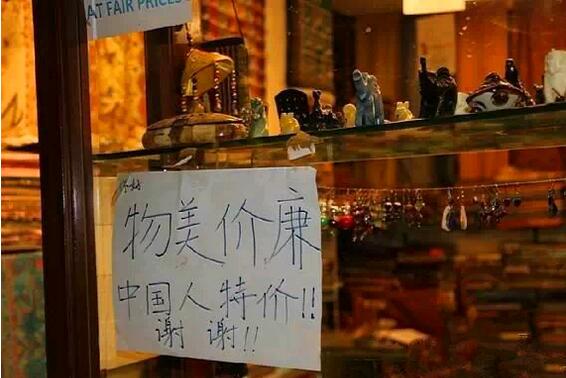 AT FAIR PRICES
物美价廉
中国人特价!!
谢谢!!